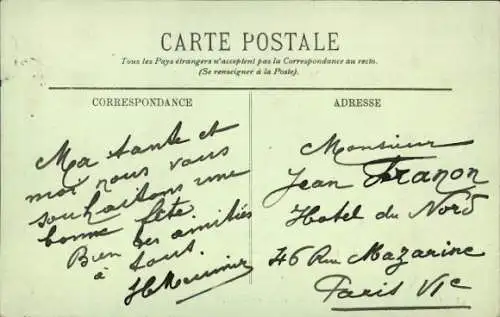 CARTE POSTALE
Tous les Pays étrangers n'acceptent pas la Correspondance au recto.
(Se renseigner à la Poste).
CORRESPONDANCE
Ma tante et
moi nous vous
souhaitons une
bonne fête.
Bien des amitiés
à tous.
HMeunier
ADRESSE
Monsieur
Jean Franon
Hotel du Nord
46 Rue Mazarine
Paris VIe